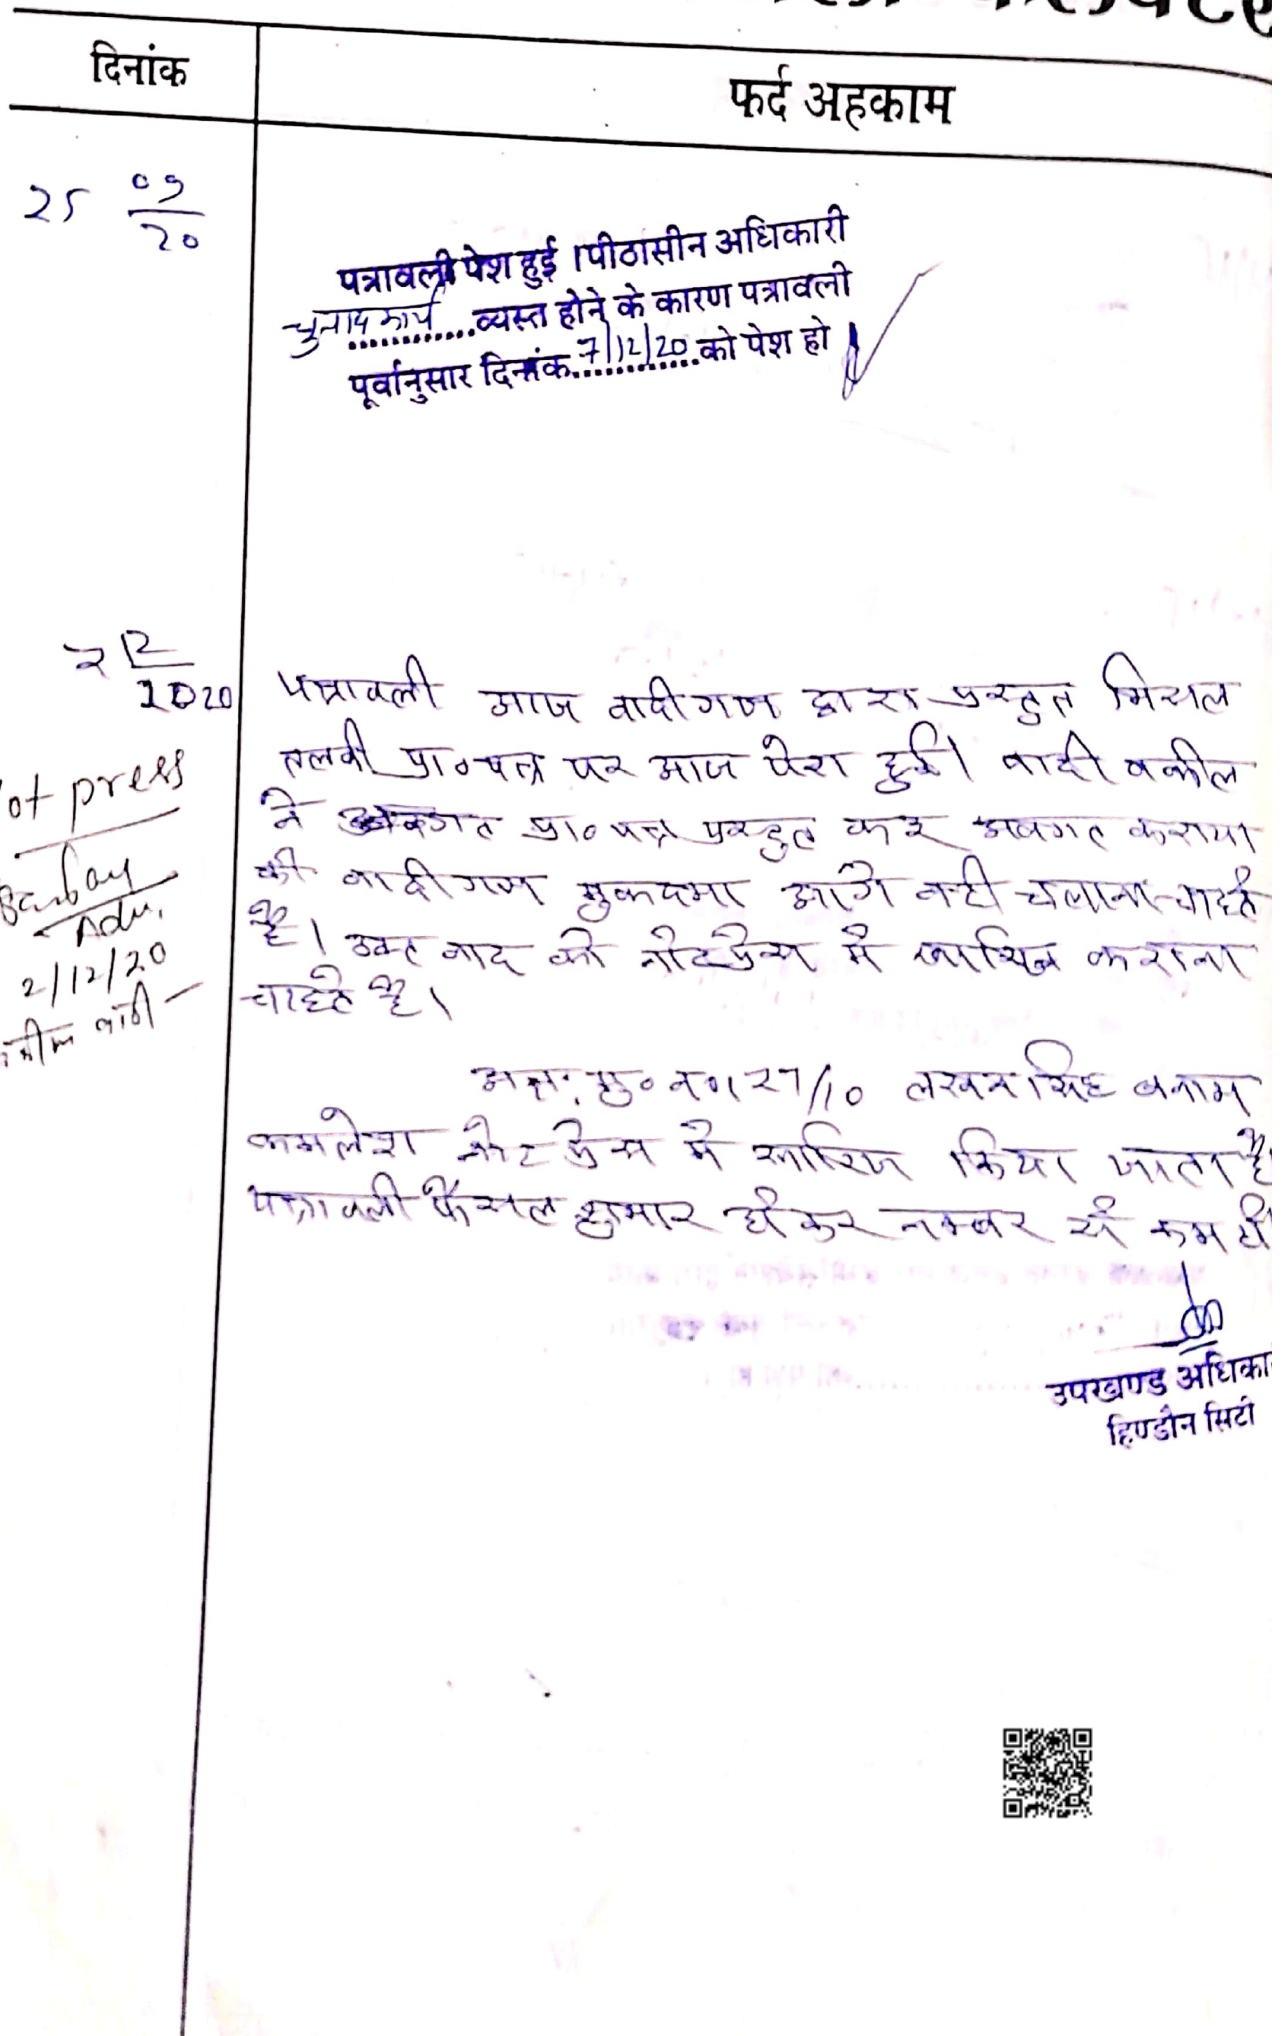 दिनांक
फर्द अहकाम
25 09/20
पत्रावली पेश हुई । पीठासीन अधिकारी
चुनाव कार्य व्यस्त होने के कारण पत्रावली
पूर्वानुसार दिनांक 7/12/20 को पेश हो
2 12/2020
पत्रावली आज वादीगण द्वारा प्रस्तुत मिसल
तलबी प्रा० पत्र पर आज पेश हुई। वादी वकील
ने प्रा० पत्र प्रस्तुत कर अवगत कराया
की वादीगण मुकदमा आगे नही चलाना चाहते
है। उक्त वाद को नोटप्रेस में खारिज कराना
चाहते है।
ot press
Adv.
2/12/20
अतः मु० न० 127/10 लखन सिंह बनाम
कमलेश नोट प्रेस मे खारिज किया जाता है
पत्रावली फैसल शुमार होकर नम्बर से कम हो
उपखण्ड अधिका
हिण्डौन सिटी